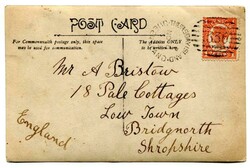 POST CARD
For Commonwealth postage only, this space
may be used for communication.
The Address ONLY
to be written here.
Mr A Bristow
18 Pale Cottages
Low Town
Bridgnorth
Shropshire
England